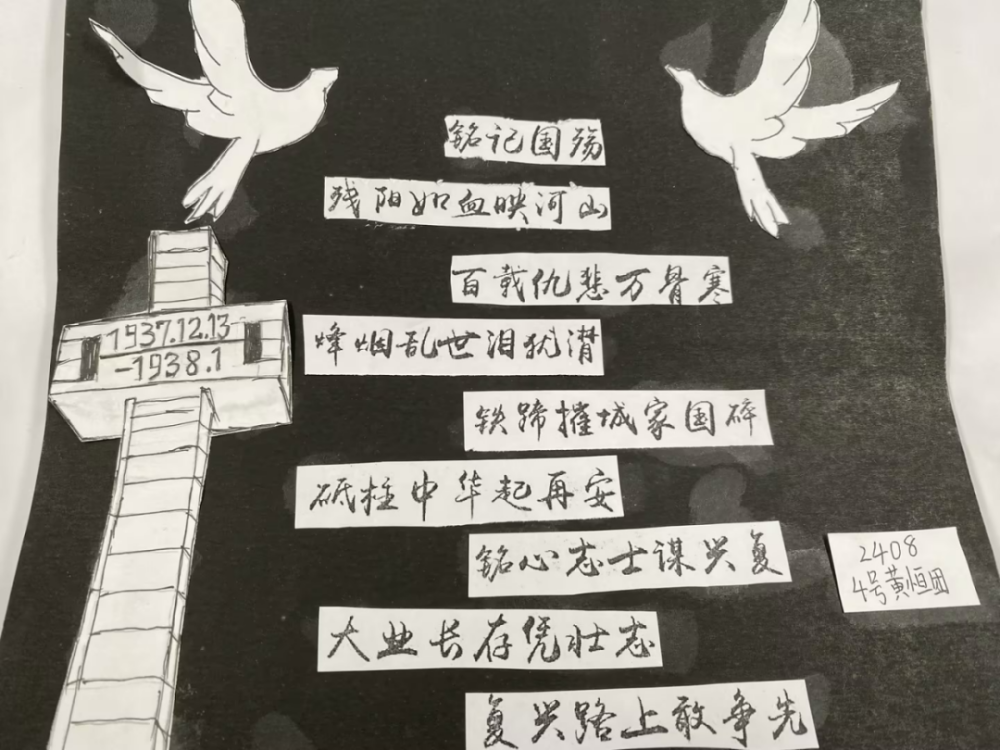 铭记国殇
残阳如血映河山
百载仇悲万骨寒
烽烟乱世泪犹潸
铁蹄摧城家国碎
砥柱中华起再安
铭心志士谋兴复
大业长存凭壮志
复兴路上敢争先
1937.12.13
-1938.1
2408
4号黄恒田